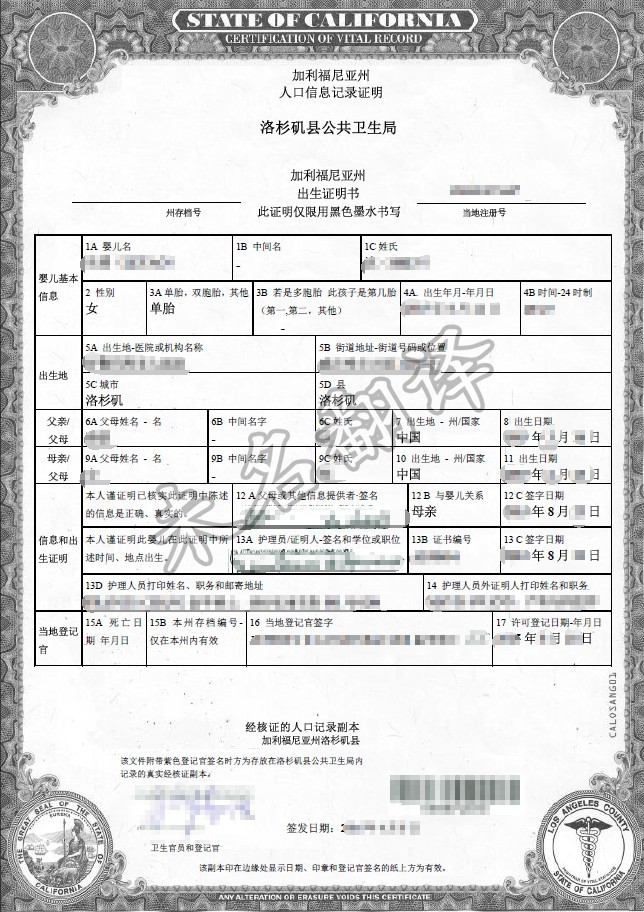 STATE OF CALIFORNIA
CERTIFICATION OF VITAL RECORD
加利福尼亚州
人口信息记录证明
洛杉矶县公共卫生局
加利福尼亚州
出生证明书
州存档号 此证明仅限用黑色墨水书写 当地注册号
1A 婴儿名 1B 中间名 1C 姓氏
-
婴儿基本信息
2 性别 3A 单胎，双胞胎，其他 3B 若是多胞胎 此孩子是第几胎（第一,第二，其他） 4A. 出生年月-年月日 4B 时间-24 时制
女 单胎 -
出生地
5A 出生地-医院或机构名称 5B 街道地址-街道号码或位置
5C 城市 5D 县
洛杉矶 洛杉矶
父亲/父母
6A 父母姓名 - 名 6B 中间名字 6C 姓氏 7 出生地 - 州/国家 8 出生日期
- 中国 年 月 日
母亲/父母
9A 父母姓名 - 名 9B 中间名字 9C 姓氏 10 出生地 - 州/国家 11 出生日期
- 中国 年 月 日
信息和出生证明
本人谨证明已核实此证明中陈述的信息是正确、真实的。 12 A 父母或其他信息提供者-签名 12 B 与婴儿关系 12 C 签字日期
母亲 年 8 月 日
本人谨证明此婴儿在此证明中所述时间、地点出生。 13A 护理员/证明人-签名和学位或职位 13B 证书编号 13 C 签字日期
年 8 月 日
13D 护理人员打印姓名、职务和邮寄地址 14 护理人员外证明人打印姓名和职务
当地登记官
15A 死亡日期 年月日 15B 本州存档编号-仅在本州内有效 16 当地登记官签字 17 许可登记日期-年月日
年 月 日
未名翻译
CALOSANG01
经核证的人口记录副本
加利福尼亚州洛杉矶县
该文件附带紫色登记官签名时方为存放在洛杉矶县公共卫生局内
记录的真实经核证副本。
签发日期：
卫生官员和登记官
该副本印在边缘处显示日期、印章和登记官签名的纸上方为有效。
GREAT SEAL OF THE STATE OF CALIFORNIA
EUREKA
LOS ANGELES COUNTY
ANY ALTERATION OR ERASURE VOIDS THIS CERTIFICATE